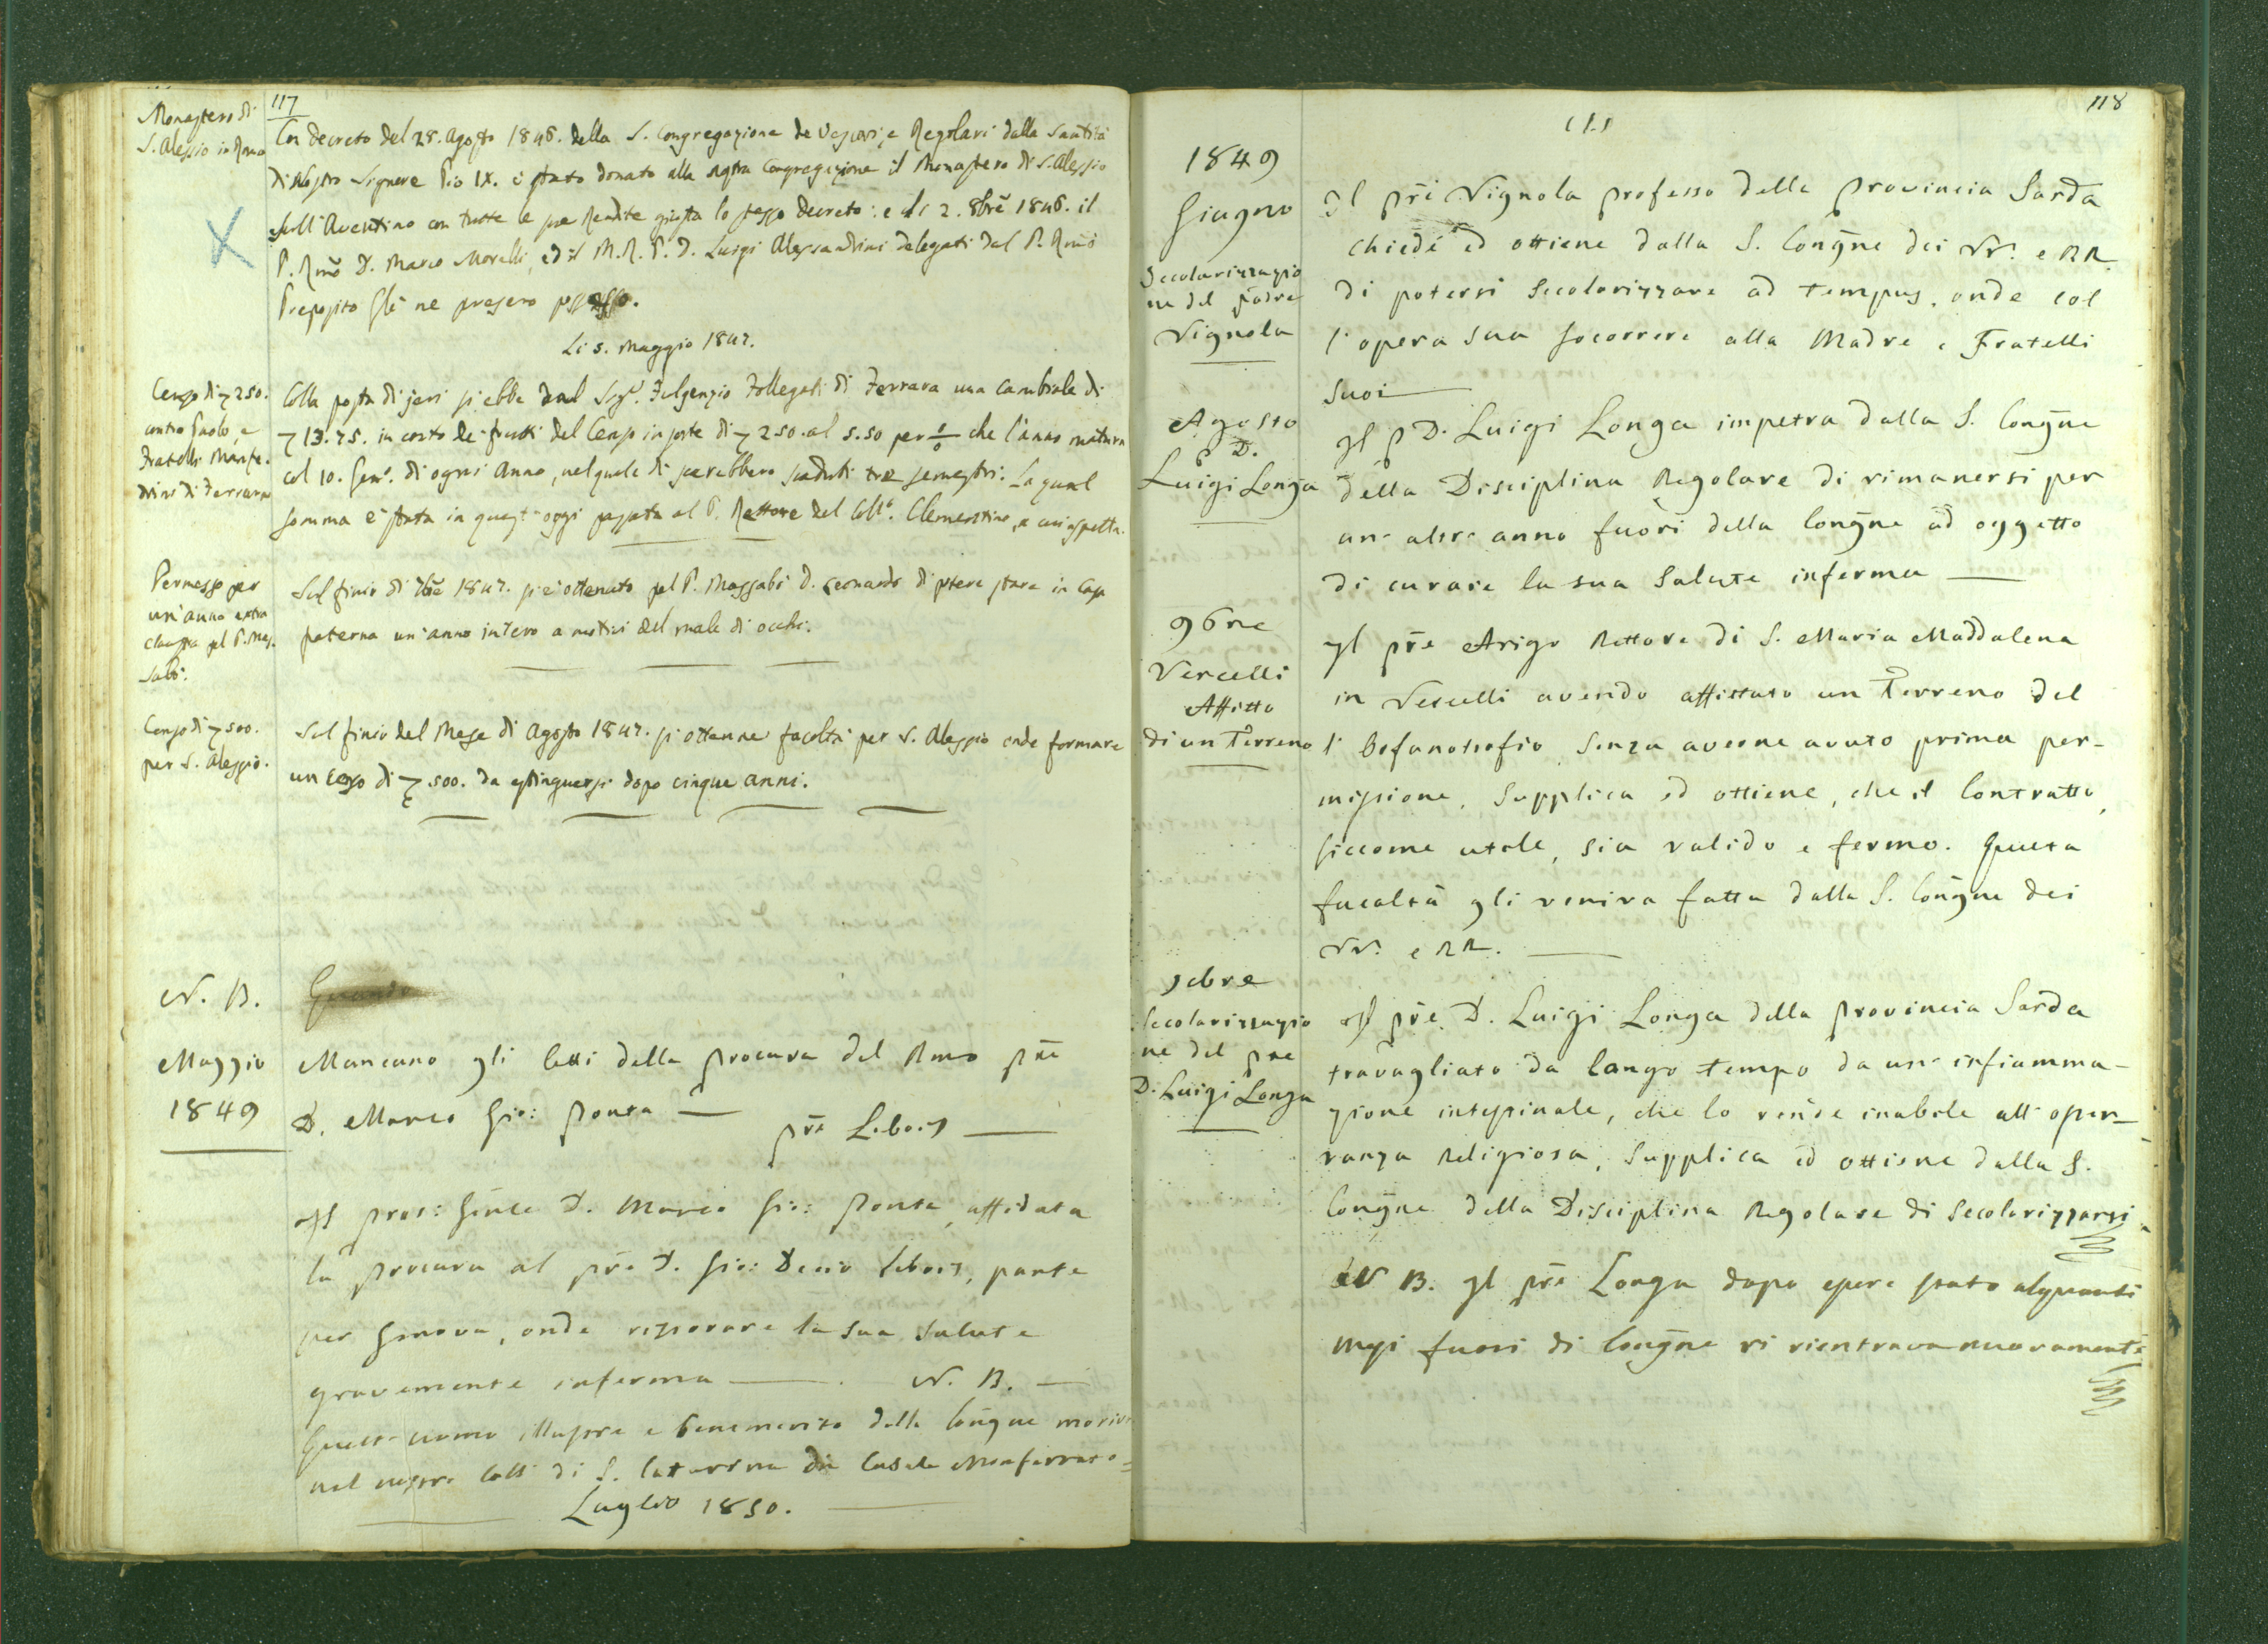 117
Monastero di
S. Alessio in Roma
Con decreto del 28. Agosto 1846. della S. Congregazione de Vescovi, e Regolari dalla Santità
di Nostro Signore Pio IX. è stato donato alla nostra Congregazione il Monastero di S. Alessio
sull'Aventino con tutte le sue Rendite giusta lo stesso decreto: e li 2. 8bre 1846. il
P. Rmo D. Marco Morelli, ed il M. R. P. D. Luigi Alessandrini delegati dal P. Rmo
Preposito Gle ne presero possesso.
Li 5. Maggio 1847.
Censo di 250.
contro Paolo, e
Fratelli Manfre-
drini di Ferrara
Colla posta di jeri si ebbe dal Sigr. Fulgenzio Follegati di Ferrara una cambiale di
13.75. in conto de' frutti del Censo in sorte di 250. al 5.50 per % che l'anno matura
col 10. Genn. di ogni anno, nel quale dì sarebbero scaduti tre semestri. La qual
somma è stata in quest'oggi pagata al P. Rettore del Coll. Clementino, a cui spetta.
Permesso per
un'anno extra
claustra pel P. Mas-
sabò.
Sul finir di 7bre 1847. si è ottenuto pel P. Massabò D. Leonardo di potere stare in Casa
paterna un'anno intero a motivi del male di occhi.
Censo di 500.
per S. Alessio.
Sul finir del Mese di Agosto 1847. si ottenne facoltà per S. Alessio onde formare
un Censo di 500. da estinguersi dopo cinque anni.
N. B.
Quando
Maggio
1849
Mancano gli Atti della procura del Rmo pre
D. Marco Gio: Ponta —
pre Libois —
Il pros: Gnle D. Marco Gio: Ponta, affidata
la procura al pre D. Gio: Decio Libois, parte
per Genova, onde ristorare la sua salute
gravemente inferma — N. B. —
Quest'uomo illustre e benemerito della Congne moriva
nel nostro Coll. di S. Caterina in Casale Monferrato =
Luglio 1850.
118
1849
Giugno
Secolarizzazio
ne del padre
Vignola
Il pre Vignola professo della provincia Sarda
chiede ed ottiene dalla S. Congne dei VV. e RR.
di potersi Secolarizzare ad tempus, onde col
l'opera sua socorrere alla Madre e Fratelli
suoi —
Agosto
P. D.
Luigi Longa
Il P D. Luigi Longa impetra dalla S. Congne
della Disciplina Regolare di rimanersi per
un altro anno fuori della Congne ad oggetto
di curare la sua salute inferma —
9bre
Vercelli
Affitto
di un Terreno
Il pre Arigo Rettore di S. Maria Maddalena
in Vercelli avendo affittato un Terreno del
l'Orfanotrofio, senza averne avuto prima per-
missione, Supplica ed ottiene, che il Contratto,
siccome utile, sia valido e fermo. Questa
facoltà gli veniva fatta dalla S. Congne dei
VV. e RR. —
Secolarizzazio
ne del pre
D. Luigi Longa
Il pre D. Luigi Longa della provincia Sarda
travagliato da lungo tempo da un'infiamma-
zione intestinale, che lo rende inabile all'osser-
vanza Religiosa, Supplica ed ottiene dalla S.
Congne della Disciplina Regolare di Secolarizzarsi.
N B. Il pre Longa dopo essere stato alquanti
mesi fuori di Congne vi rientrava nuovamente